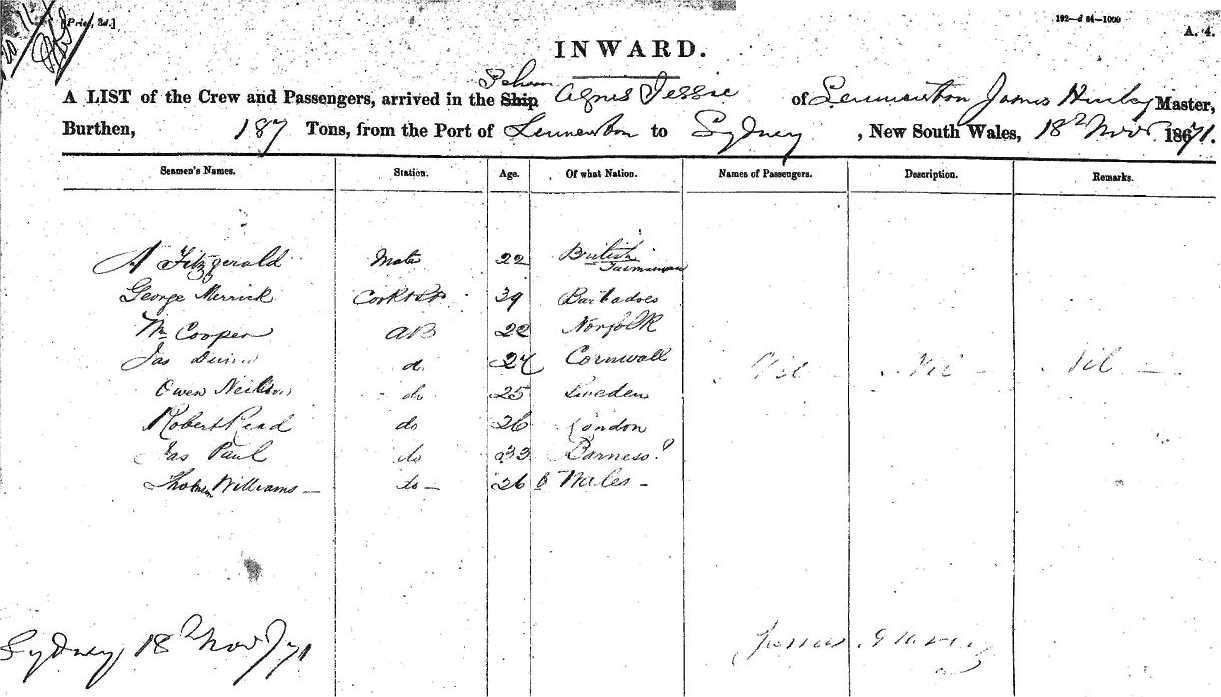 [Price, 3d.]
192—d 64—1000
A. 4.
INWARD.
Schoon
A LIST of the Crew and Passengers, arrived in the Ship Agnes Jessie of Launceston James Master,
Burthen, 187 Tons, from the Port of Launceston to Sydney, New South Wales, 18th Novr 1871.
Seamen's Names. Station. Age. Of what Nation. Names of Passengers. Description. Remarks.
A Fitzgerald Mate 22 British
George Merrick Cook 39 Barbadoes
Wm Cooper AB 22 Norfolk
Jas do 27 Cornwall Nil Nil Nil —
Owen do 25 Sweden
Robert Read do 26 London
Jas Paul do 33
Williams — do — 26 Wales —
Sydney 18th Nov /71
James